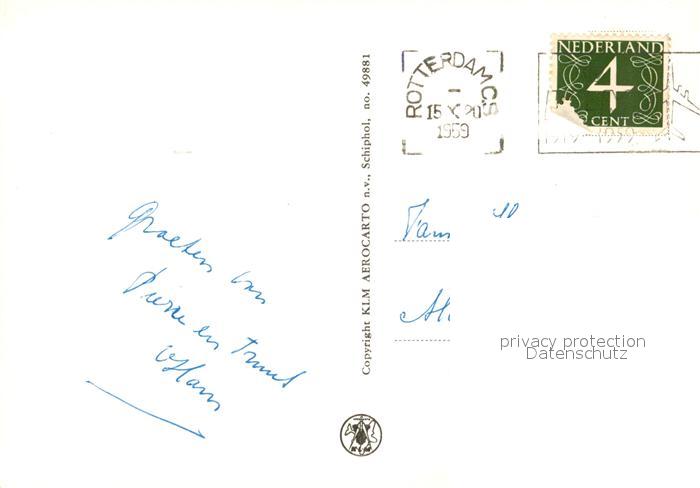 Groeten van
Pierre en Truus
Hans
Copyright KLM AEROCARTO n.v., Schiphol, no. 49881
KLM
ROTTERDAM C.S
15 X 20
1959
NEDERLAND
4
CENT
Fam
privacy protection
Datenschutz